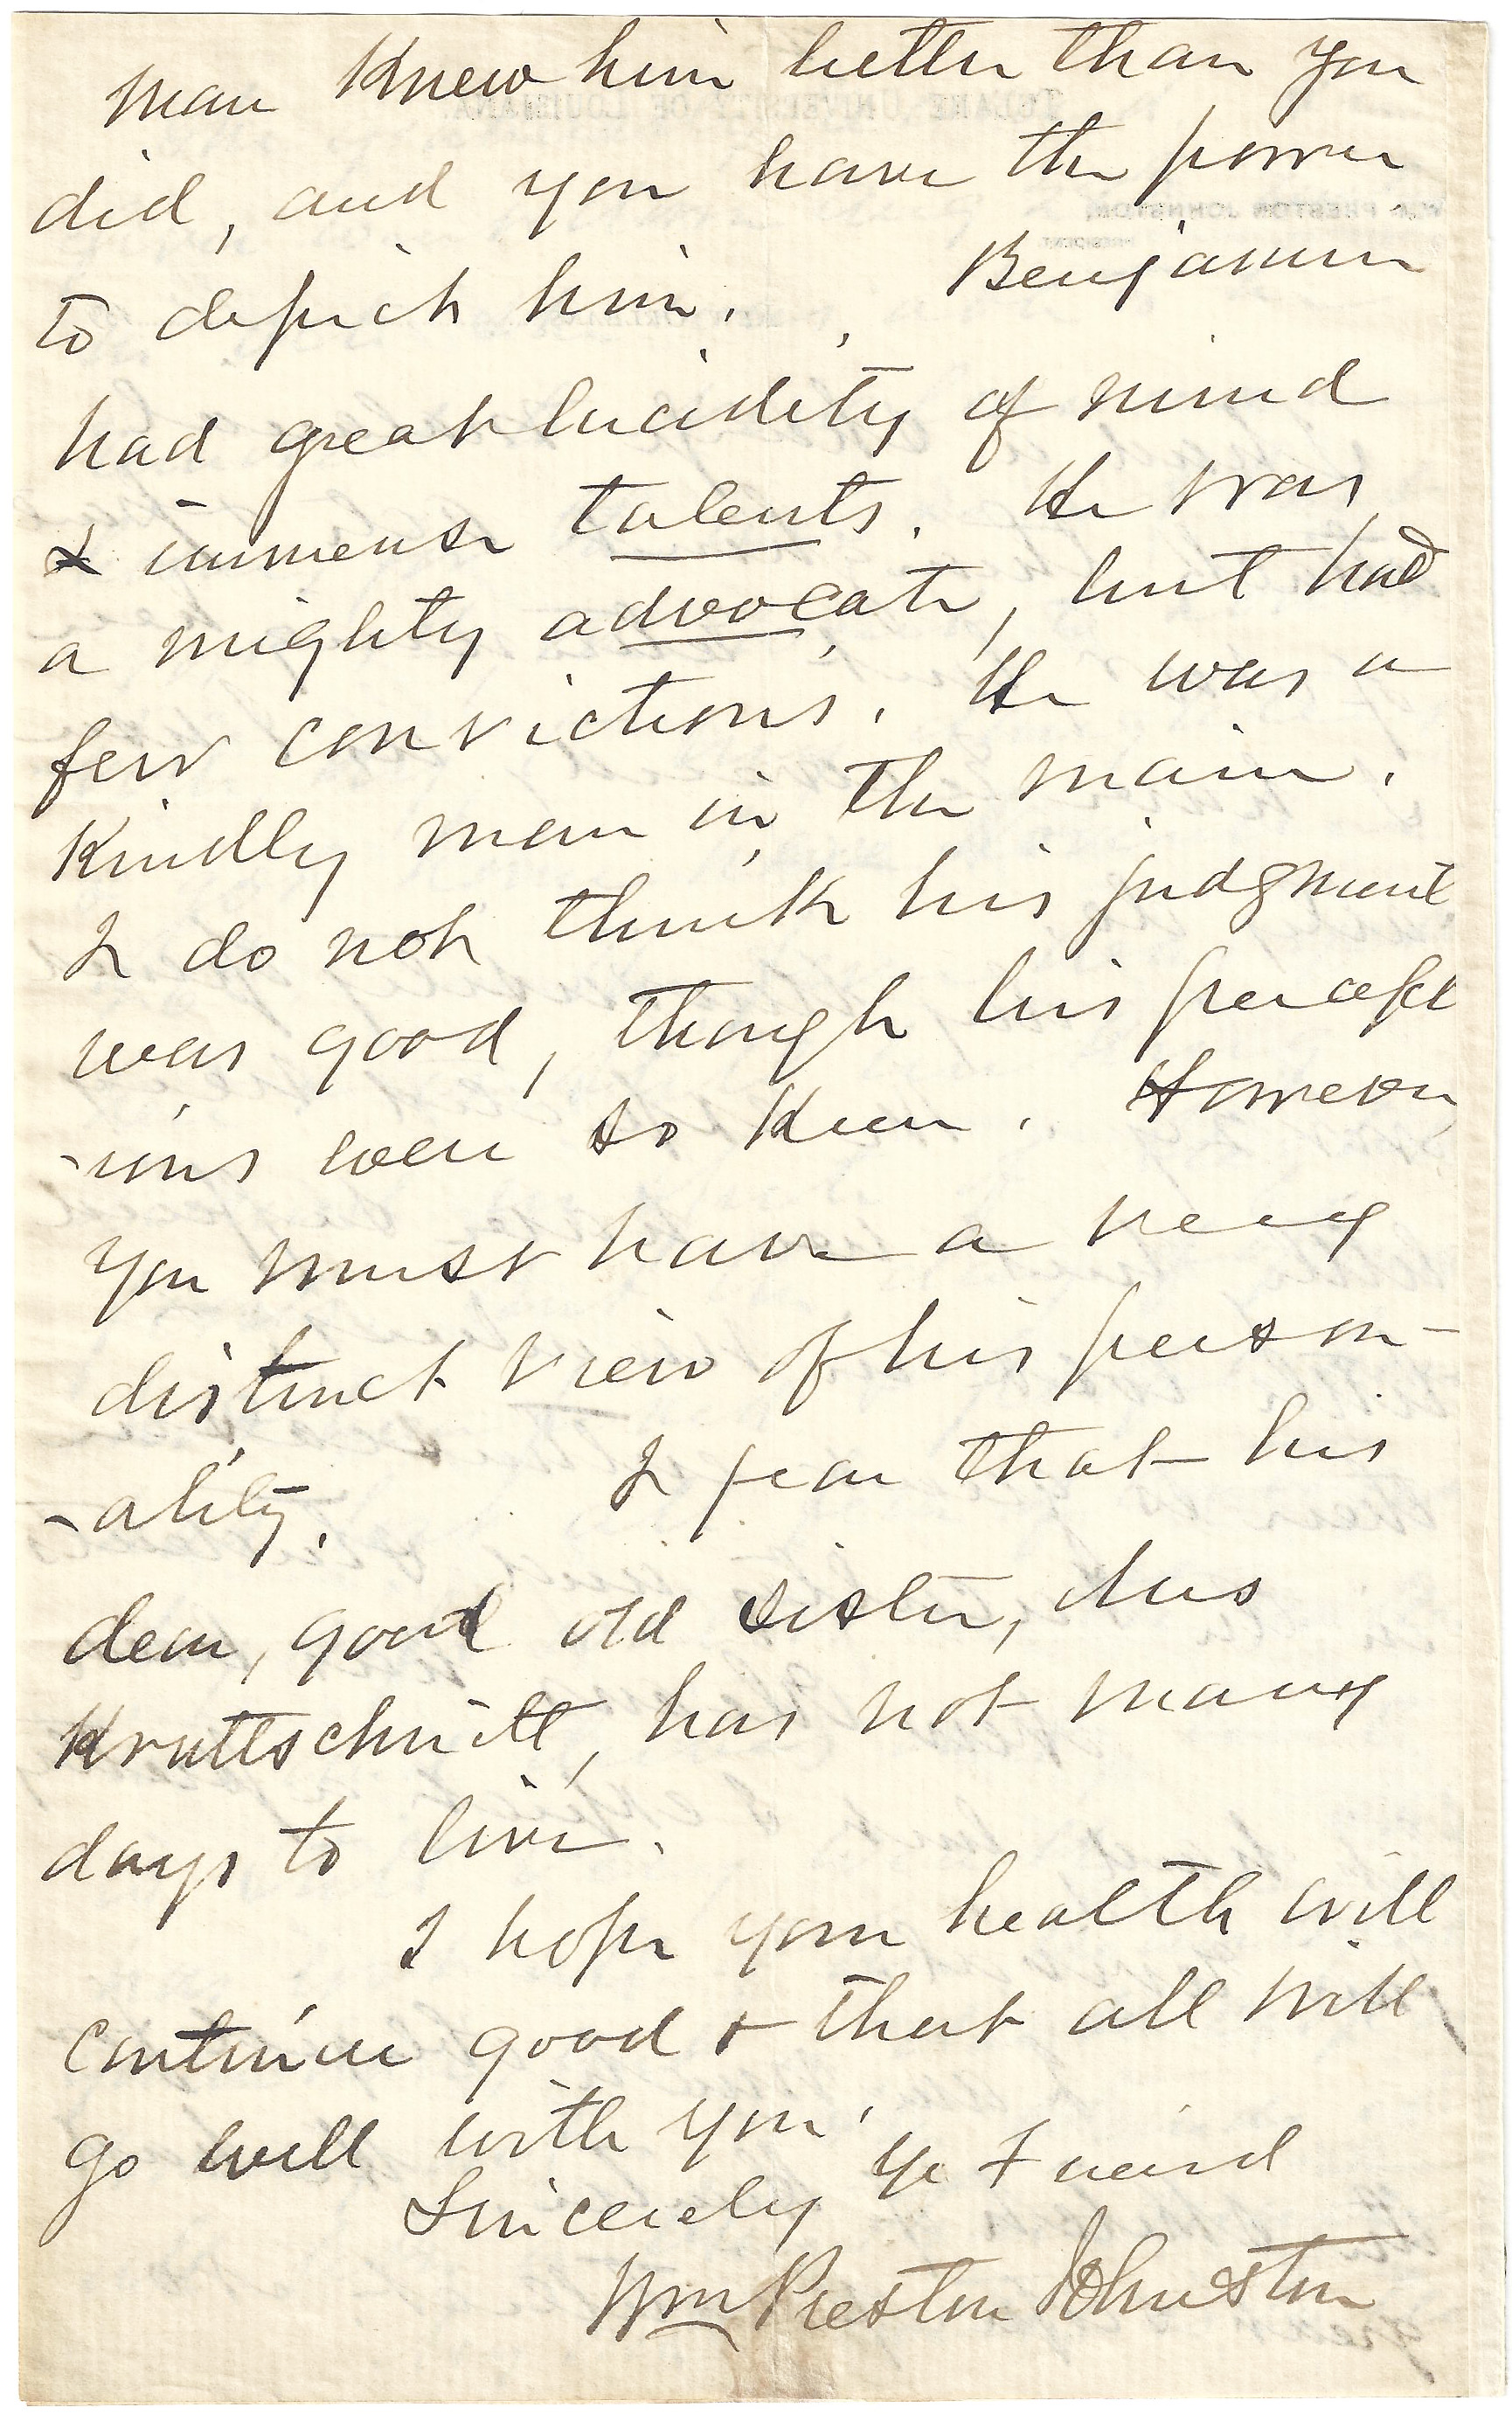 man knew him better than you
did, and you have the power
to depict him. Benjamin
had great lucidity of mind
& immense talents. He was
a mighty advocate, but had
few convictions. He was a
kindly man in the main.
I do not think his judgment
was good, though his percept
-ions were so keen. However,
you must have a very
distinct view of his person-
-ality. I fear that his
dear, good old sister, Mrs
Kruttschnitt, has not many
days to live.
I hope your health will
continue good & that all will
go well with you.
Sincerely Yr Friend
Wm Preston Johnston